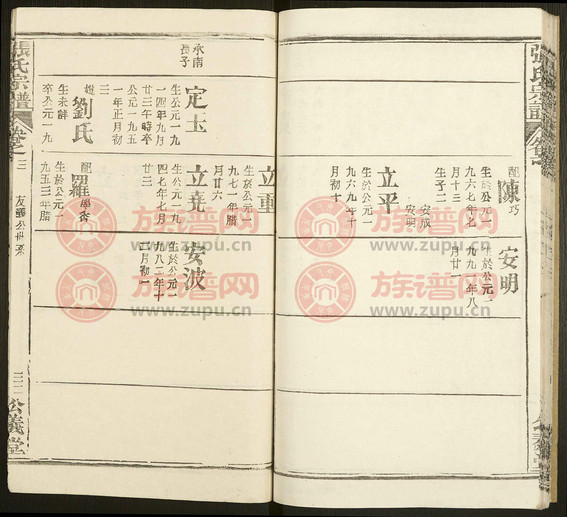 張氏宗譜
配陳巧
生於公元一
九六七年七
月十三
生子二
安成
安明
立平
生於公元一
九六九年十
月初十
安明
生於公元一
九九一年八
月廿一
承南
長子
定玉
生公元一九
一四年九月
廿三午時卒
公元一九五
一年正月初
三
娶劉氏
生未詳
卒公元一九
立重
生於公元一
九七一年腊
月廿六
立堯
生於公元一九
四七年七月
廿三
配羅學香
生於公元一
九五三年腊
安波
生於公元一
九八二年十
二月初一
張氏宗譜
卷之三
友疆公世系
三二
公義堂
族谱网
www.zupu.cn
族谱网
www.zupu.cn
族谱网
www.zupu.cn
族谱网
www.zupu.cn